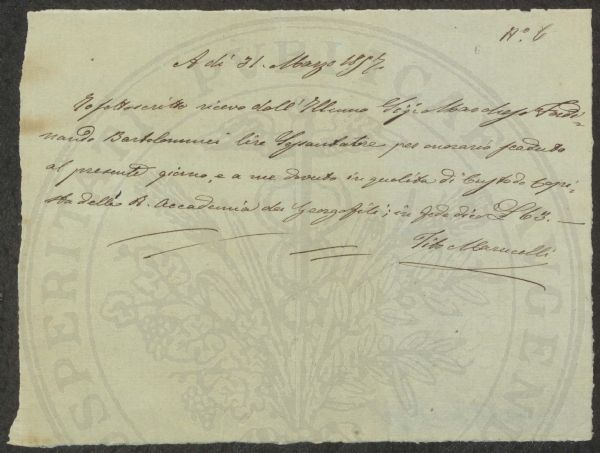 N.º 6
A dì 31. Marzo 1857.
Io sottoscritto ricevo dall' Illmo Sigr Marchese Ferdi-
nando Bartolommei lire Sessantatre per onorario scaduto
al presente giorno, e a me dovuto in qualità di Custode Copi-
sta della R. Accademia dei Georgofili; in fede dico £ 63. —
Tito Marucelli
PROSPERITÀ PUBLICA